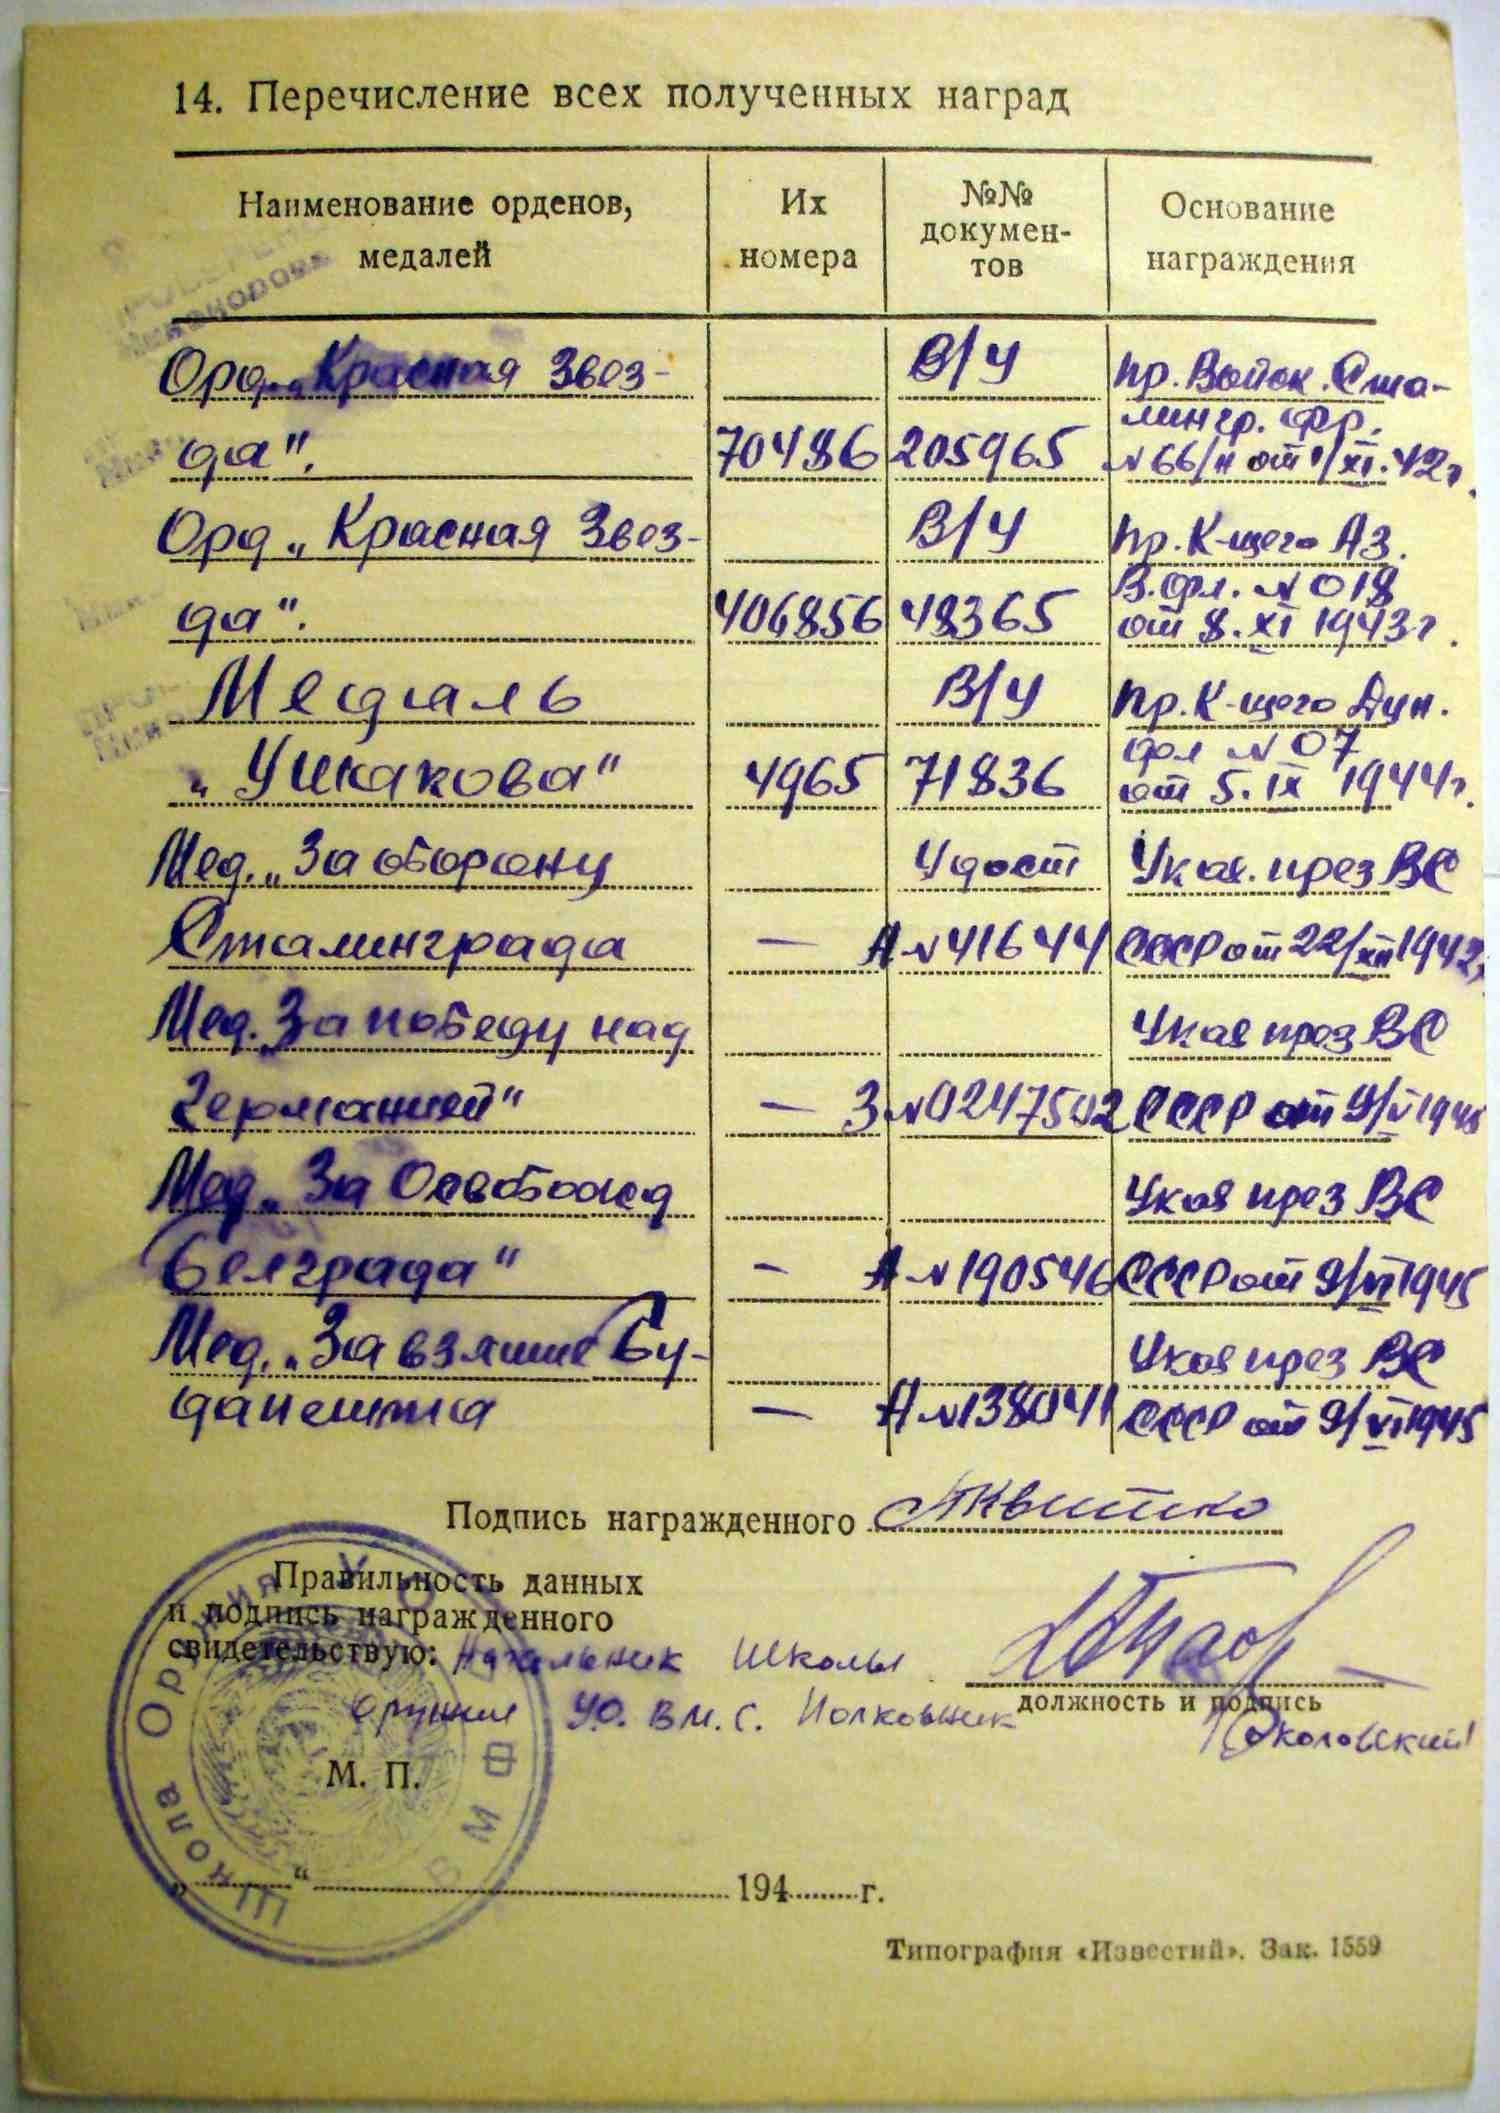 14. Перечисление всех полученных наград
Наименование орденов,
медалей
Их
номера
№№
докумен-
тов
Основание
награждения
Орд. „Красная Звез-
В/У
пр. Войск. Ста-
лингр. фр.
да".
70486
205965
№ 66/н от 1/XI.42г.
Орд „Красная Звез-
В/У
пр. К-щего Аз.
В. фл. № 018
да".
406856
48365
от 8. XI 1943г.
Медаль
В/У
пр. К-щего Дун.
фл № 07
„Ушакова"
4965
71836
от 5. IX 1944г.
Мед. „За оборону
Удост
Указ. през ВС
Сталинграда
—
А №41644
СССР от 22/XII 1942г
Мед. „За победу над
Указ през ВС
Германией"
—
З №0247502
СССР от 9/V 1945
Мед „За Освобожд
Указ през ВС
Белграда"
—
А №190546
СССР от 9/VI 1945
Мед. „За взятие Бу-
Указ през ВС
дапешта
—
А №138041
СССР от 9/VI 1945
Подпись награжденного
Правильность данных
и подпись награжденного
свидетельствую: Начальник Школы
должность и подпись
Оружия УО. В М. С. Полковник
М. П.
Школа Оружия УО ВМФ
„ “ 194 г.
Типография «Известий». Зак. 1559